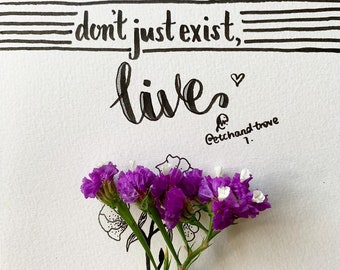 don't just exist,
live
@etchand-trove